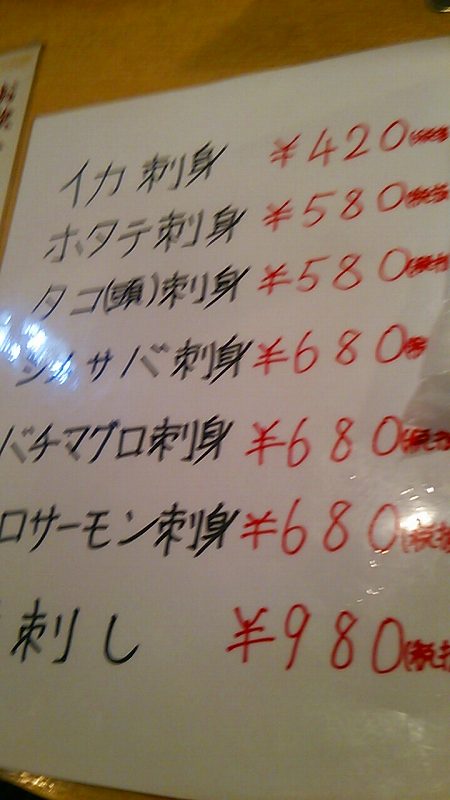 イカ刺身 ¥420(税抜
ホタテ刺身 ¥580(税抜
タコ(頭)刺身 ¥580(税抜
シメサバ刺身 ¥680(税
バチマグロ刺身 ¥680(税抜
ロサーモン刺身 ¥680(税抜
刺し ¥980(税抜